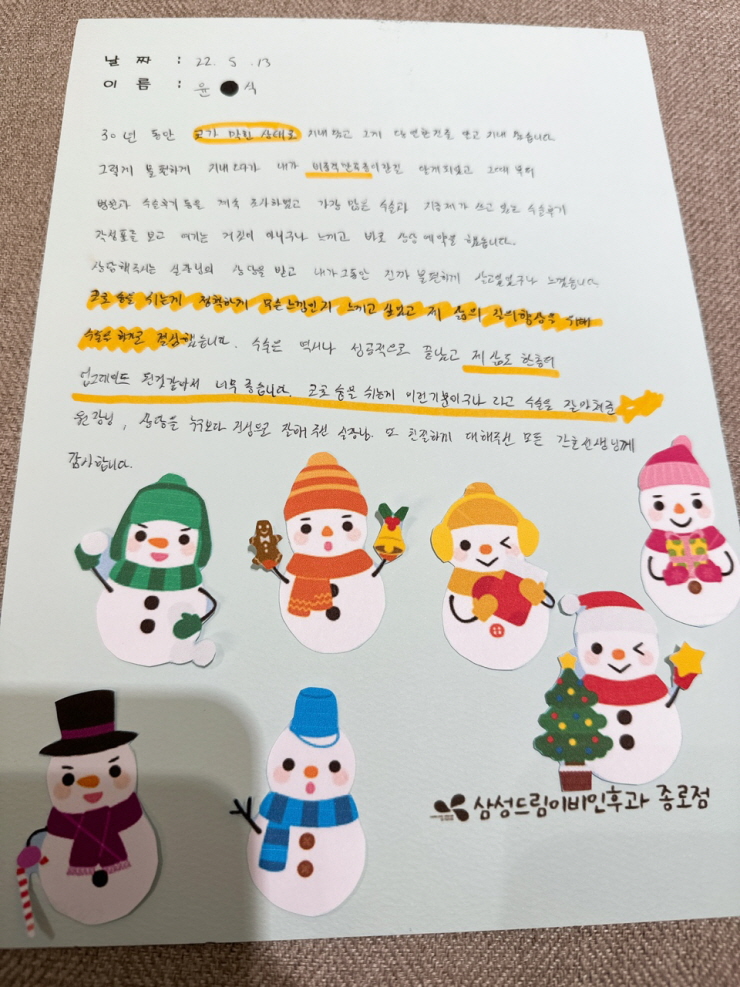 날 짜 : 22. 5. 13
이 름 : 윤 식
30년 동안 코가 막힌 상태로 지내왔고 그게 당연한건줄 알고 지내 왔습니다.
그렇게 불편하게 지내오다가 내가 비중격만곡증이란걸 알게되었고 그때 부터
병원과 수술후기 등을 계속 조사하였고 가장 많은 수술과 직접 쓰고 있는 수술후기
보고 여기는 거짓이 아니구나 느끼고 바로 상담 예약을 했습니다.
상담해주시는 실장님의 상담을 받고 내가 그동안 진짜 불편하게 살고있었구나 느꼈습니다
코로 숨을 쉬는게 정확하게 무슨느낌인지 느끼고 싶었고 제 삶의 질의향상을 위해
수술을 하기로 결심했습니다. 수술은 역시나 성공적으로 끝났고 제 삶도 한층더
업그레이드 된것같아서 너무 좋습니다. 코로 숨을 쉬는게 이런기분이구나 라고 수술을 잘 해주신
원장님, 상담을 누구보다 진심으로 잘해 주신 실장님 또 친절하게 대해주신 모든 간호선생님께
감사합니다.
삼성드림이비인후과 종로점